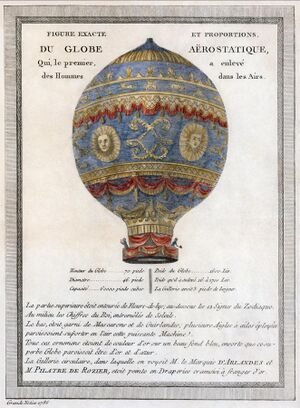 FIGURE EXACTE ET PROPORTIONS,
DU GLOBE AËROSTATIQUE,
Qui, le premier, a enlevé
des Hommes dans les Airs.
Hauteur du Globe 70 pieds Poids du Globe 1600 Liv
Diametre 46 pieds Poids qu'il
Capacité 60000 pieds cubes La Gallerie avoit 3 pieds de largeur
La partie superieure étoit entourée de Fleurs-de-lys, au-dessous les 12 Signes du Zodiaque.
Au milieu les Chiffres du Roi, entremêlés de Soleils.
Le bas étoit garni de Mascarons et de Guirlandes, plusieurs Aigles à ailes éployées
paroissoient supporter en l'air cette puissante Machine.
Tous ces ornemens étoient de couleur d'or sur un beau fond bleu, ensorte que ce su-
perbe Globe paroissoit être d'or et d'azur.
La Gallerie circulaire, dans laquelle on voyoit M. le Marquis D'ARLANDES et
M. PILATRE DE ROZIER, étoit peinte en Draperies cramoisi à franges d'or.
1786